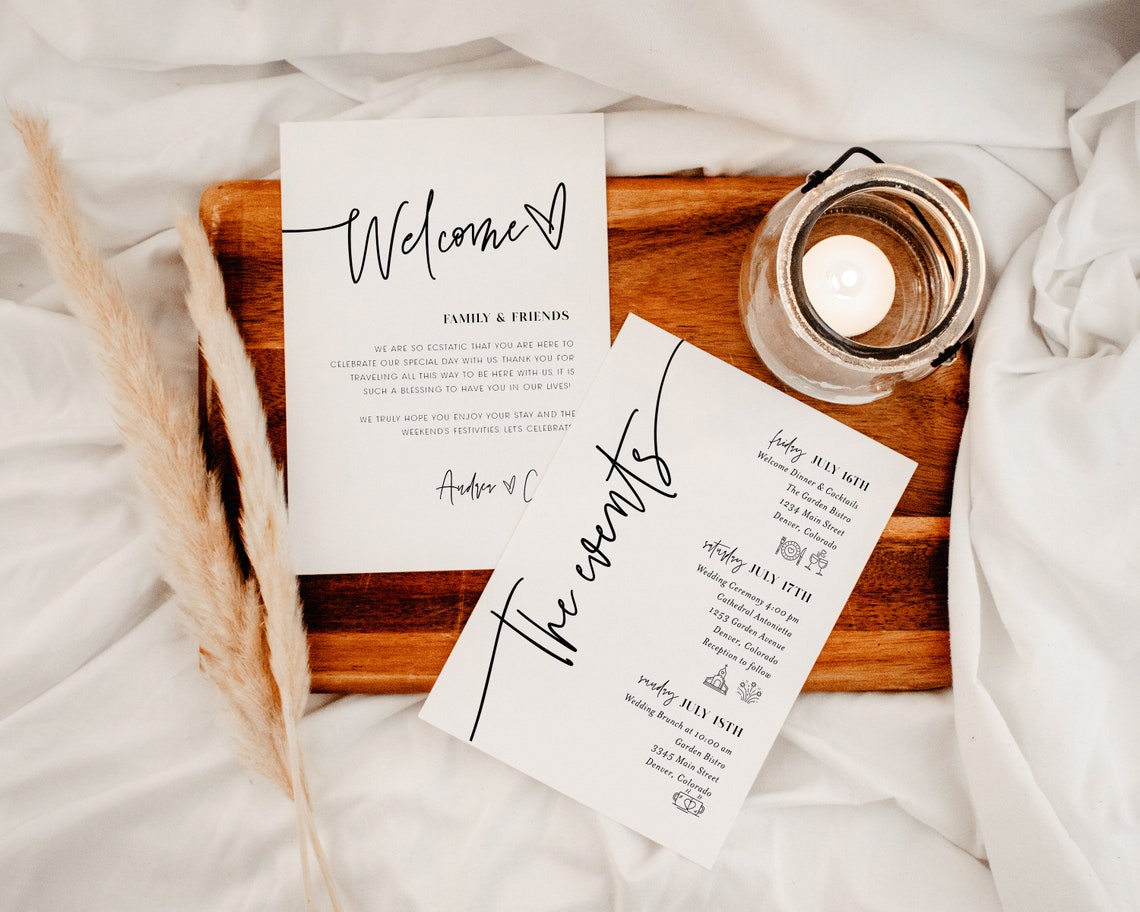 Welcome
FAMILY & FRIENDS
WE ARE SO ECSTATIC THAT YOU ARE HERE TO
CELEBRATE OUR SPECIAL DAY WITH US. THANK YOU FOR
TRAVELING ALL THIS WAY TO BE HERE WITH US, IT IS
SUCH A BLESSING TO HAVE YOU IN OUR LIVES!
WE TRULY HOPE YOU ENJOY YOUR STAY AND THE
WEEKEND'S FESTIVITIES. LET'S CELEBRATE
The events
friday JULY 16TH
Welcome Dinner & Cocktails
The Garden Bistro
1234 Main Street
Denver, Colorado
saturday JULY 17TH
Wedding Ceremony 4:00 pm
Cathedral Antonietta
1253 Garden Avenue
Denver, Colorado
Reception to follow
sunday JULY 18TH
Wedding Brunch at 10:00 am
Garden Bistro
3345 Main Street
Denver, Colorado